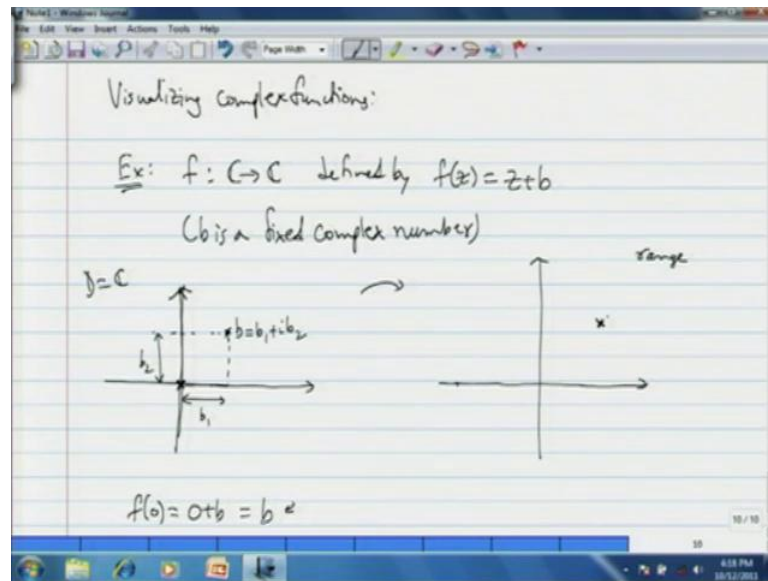 Note1 - Windows Journal
File Edit View Insert Actions Tools Help
Page Width
Visualizing complex functions:
Ex: f : C→C defined by f(z) = z+b
(b is a fixed complex number)
range
D=C
b=b₁+ib₂
b₂
b₁
f(0) = 0+b = b
10/10
10
4:18 PM
10/12/2011